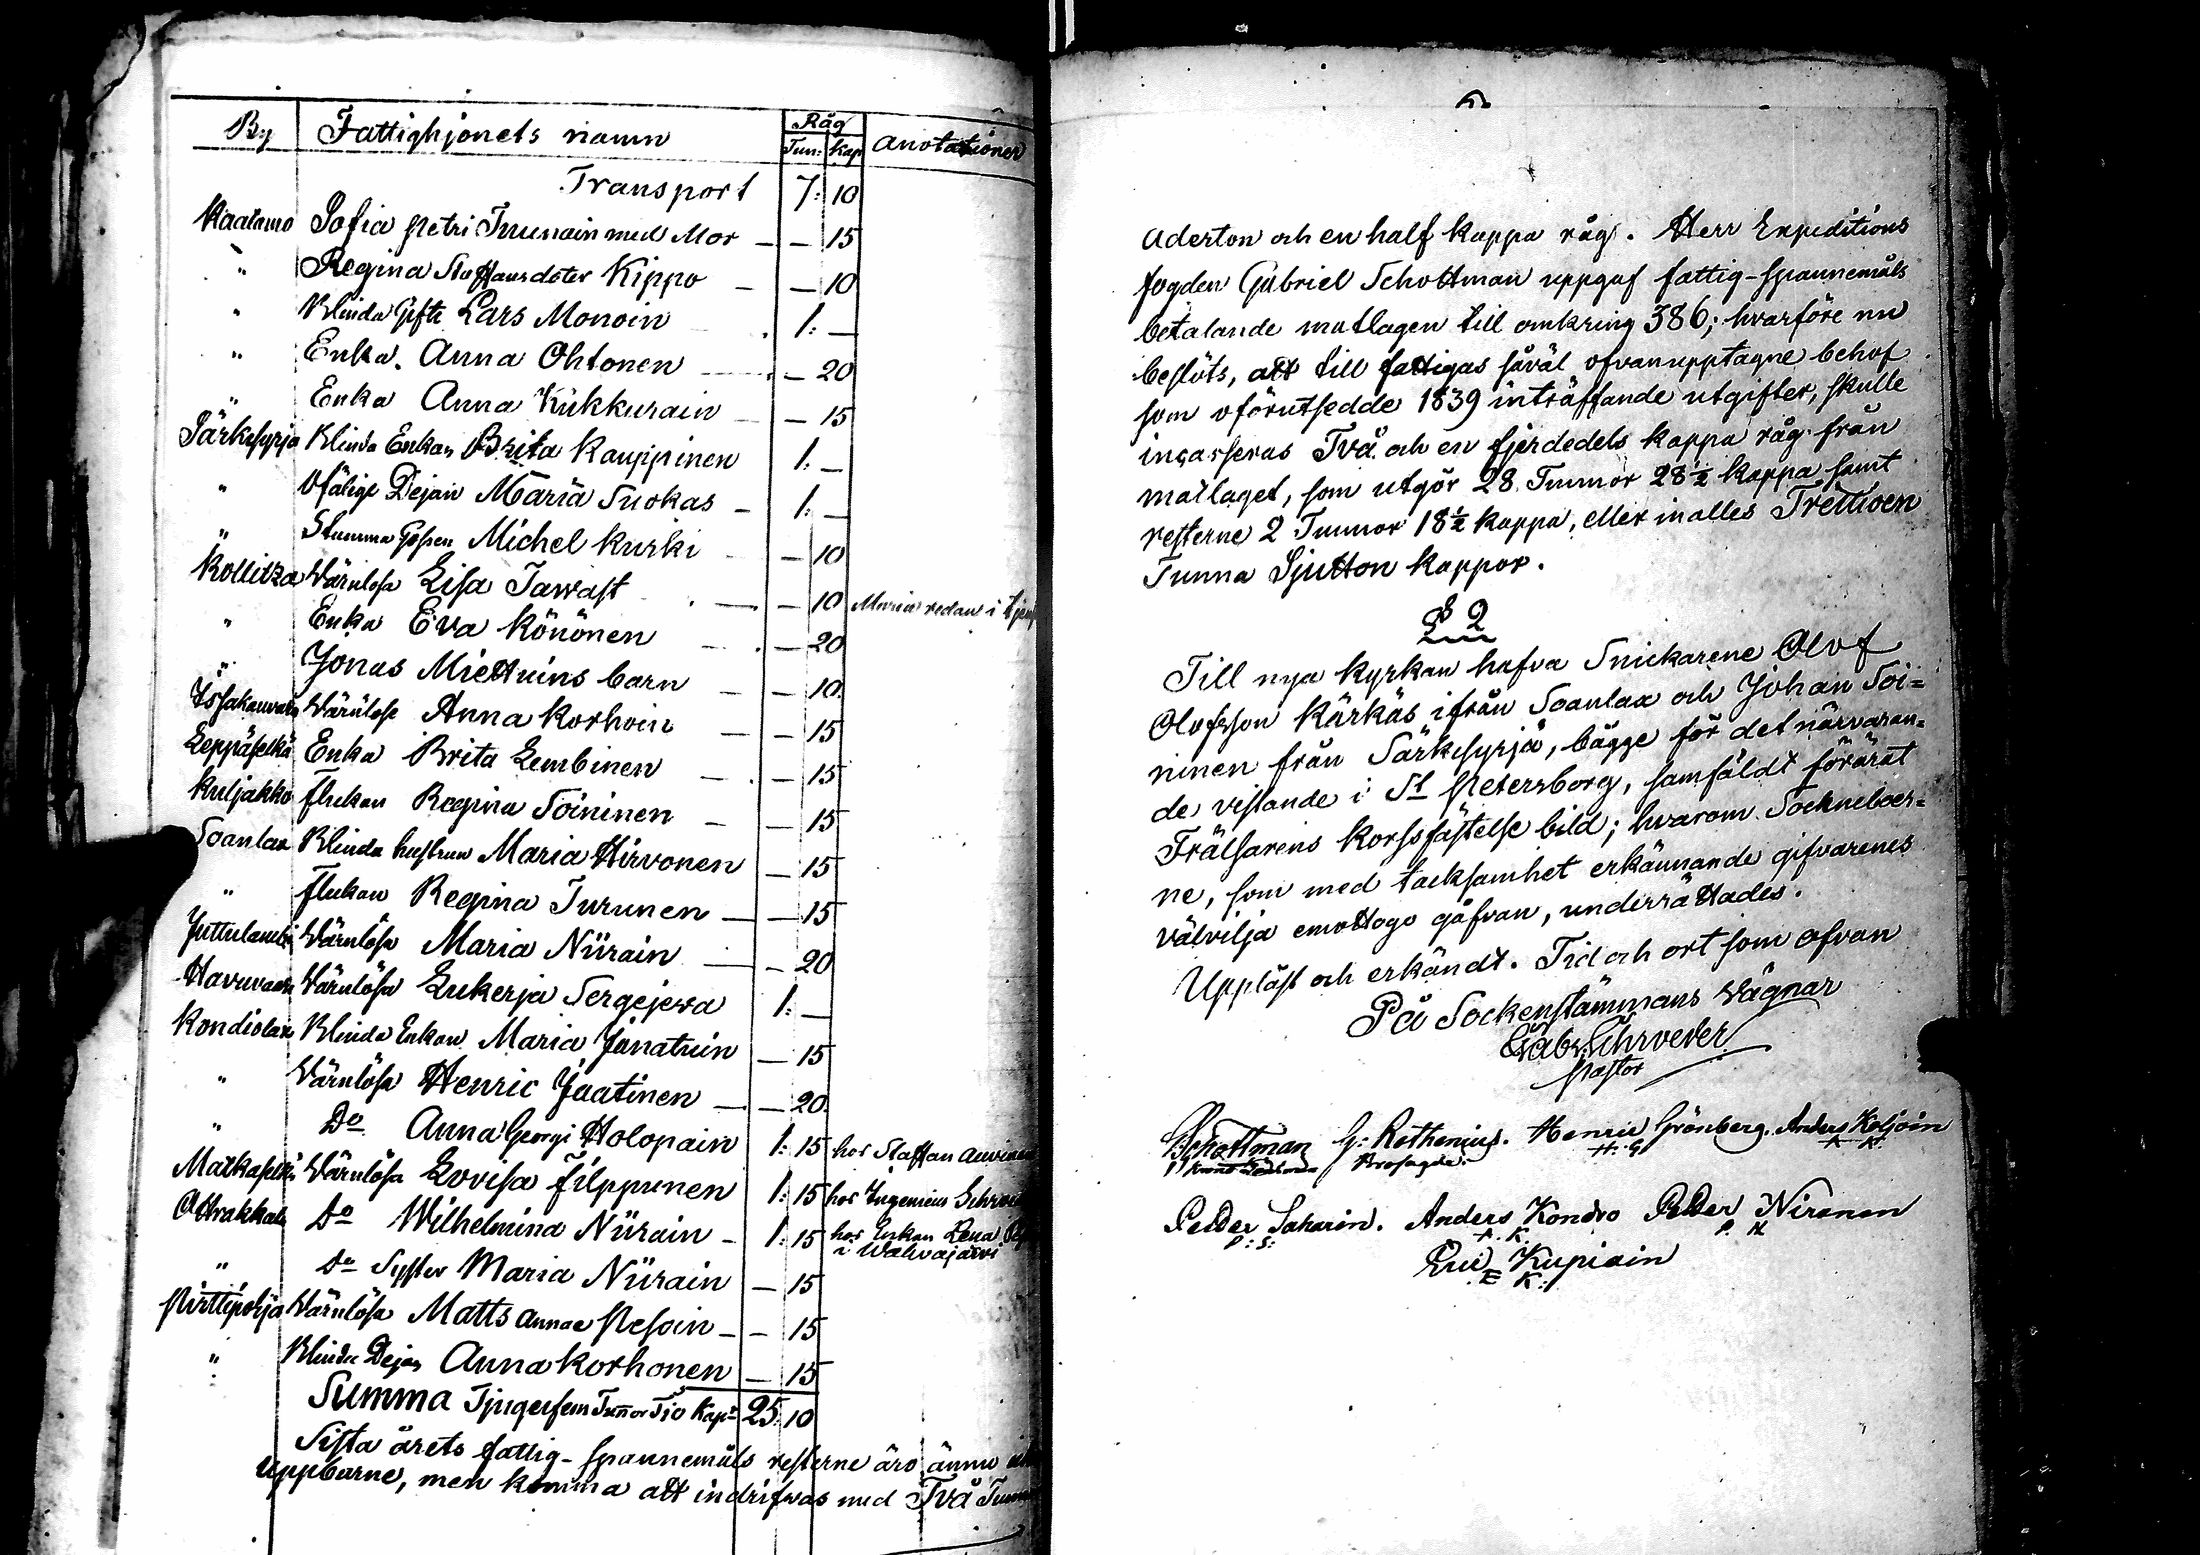 By Fattighjonets namn Råg Anotationer
Tun: Kap
Transport 7: 10
Kaalamo Sofia Petri Immonain med Mor — — 15
" Regina Staffansdoter Kippo — — 10
" Blinda Gifte Lars Monoin 1: —
" Enka. Anna Ohtonen — — 20
" Enka Anna Kukkurain — — 15
Särkisyrja Blinda Enkan Brita Kauppinen 1: —
" Ofälige Dejan Maria Suokas — 1: —
" Stumma Gossen Michel Kurki — 10
Kollitza Värnlösa Lisa Tawast — — 10 Maria redan i
" Enka Eva Könönen — — 20
" Jonas Miettuins barn — — 10
Issakanvara Värnlöse Anna Korhoin — — 15
Leppäselkä Enka Brita Lembinen — — 15
Kuljakko flickan Regina Soininen — — 15
Soanlax Blinda hustrun Maria Hirvonen — 15
" flickan Regina Turunen — — 15
Juttulambi Värnlösa Maria Niirain — — 20
Havuvaara Värnlösa Lukerja Sergejewa 1: —
Kondiolax Blinda Enkan Maria Janatuin — 15
" Värnlösa Henric Jaatinen — — 20
" Do Anna Georgi Holopain 1: 15 hos Staffan Auvinen
Matkaselkä Värnlösa Lovisa Filppunen 1: 15 hos Ingenieur
Otrakkala Do Wilhelmina Niirain — 1: 15 hos Enkan Lena
i Walvajärvi
" Do Syster Maria Niirain — 15
Pirttipohja Värnlösa Matts Annae Pesoin — — 15
" Blinda Dejan Anna Korhonen — 15
Summa Tjugufem Tunnor Tio Kapr 25: 10
Sista årets fattig-spannemåls resterne äro ännu
uppburne, men komma att indrifvas med Två
Aderton och en half kappa råg. Herr Expeditions
fogden Gabriel Schottman uppgaf fattig-spannemåls
betalande matlagen till omkring 386; hvarföre nu
beslöts, att till fattigas såväl ofvanupptagne behof
som oförutsedde 1839 inträffande utgifter, skulle
incasseras Två och en fjerdedels kappa råg från
matlaget, som utgör 28 Tunnor 28½ kappa samt
resterne 2 Tunnor 18½ kappa, eller inalles Trettioen
Tunna Sjutton kappor.
§ 2
Till nya kyrkan hafva Snickarene Olof
Olofsson Kärkäs ifrån Soanlax och Johan Soi=
ninen från Särkisyrjä, bägge för det närvaran=
de vistande i St Petersborg, samfäldt förärat
Frälsarens korsfästelse bild; hvarom Socknebor=
ne, som med tacksamhet erkännande gifvarenes
välvilja emottogo gåfvan, underrättades.
Uppläst och erkändt. Tid och ort som ofvan
På Sockenstämmans Vägnar
Gabr. Schroeder
Pastor
GSchottman G: Rothenius. Henric Grönberg. Anders Koljoin
Brofogde. H: G A K
Petter Saharin. Anders Kondro Petter Nironen
P: S: A. K. P. N
Eric Kupiain
E K: